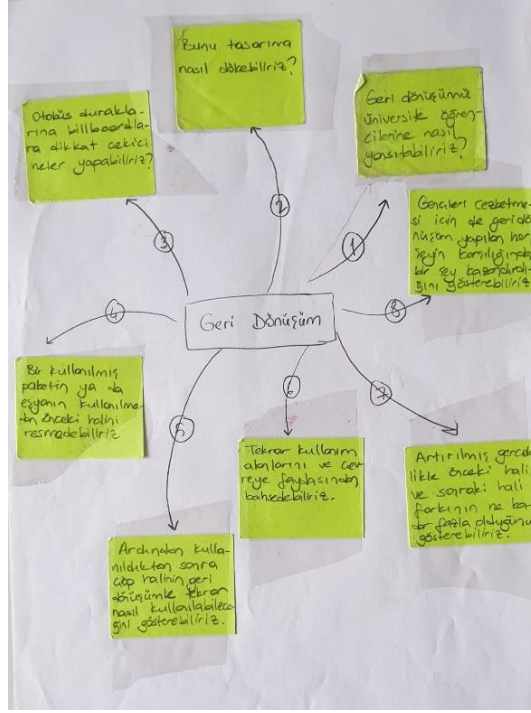 Geri Dönüşüm
1
Geri dönüşümü
üniversite öğren-
cilerine nasıl
yansıtabiliriz?
2
Bunu tasarıma
nasıl dökebiliriz?
3
Otobüs durakla-
rına billboardla-
ra dikkat çekici
neler yapabiliriz?
4
Bir kullanılmış
paketin ya da
eşyanın kullanılma-
dan önceki halini
resmedebiliriz.
5
Ardından kulla-
nıldıktan sonra
çöp halinin geri
dönüşümle tekrar
nasıl kullanılabilece-
ğini gösterebiliriz.
6
Tekrar kullanım
alanlarını ve çev-
reye faydasından
bahsedebiliriz.
7
Artırılmış gerçek-
likle önceki hali
ve sonraki hali
farkının ne ka-
dar fazla olduğunu
gösterebiliriz.
8
Gençleri cezbetme-
si için de geri dö-
nüşüm yapılan her
şeyin karşılığında
bir şey kazandırdı-
ğını gösterebiliriz.